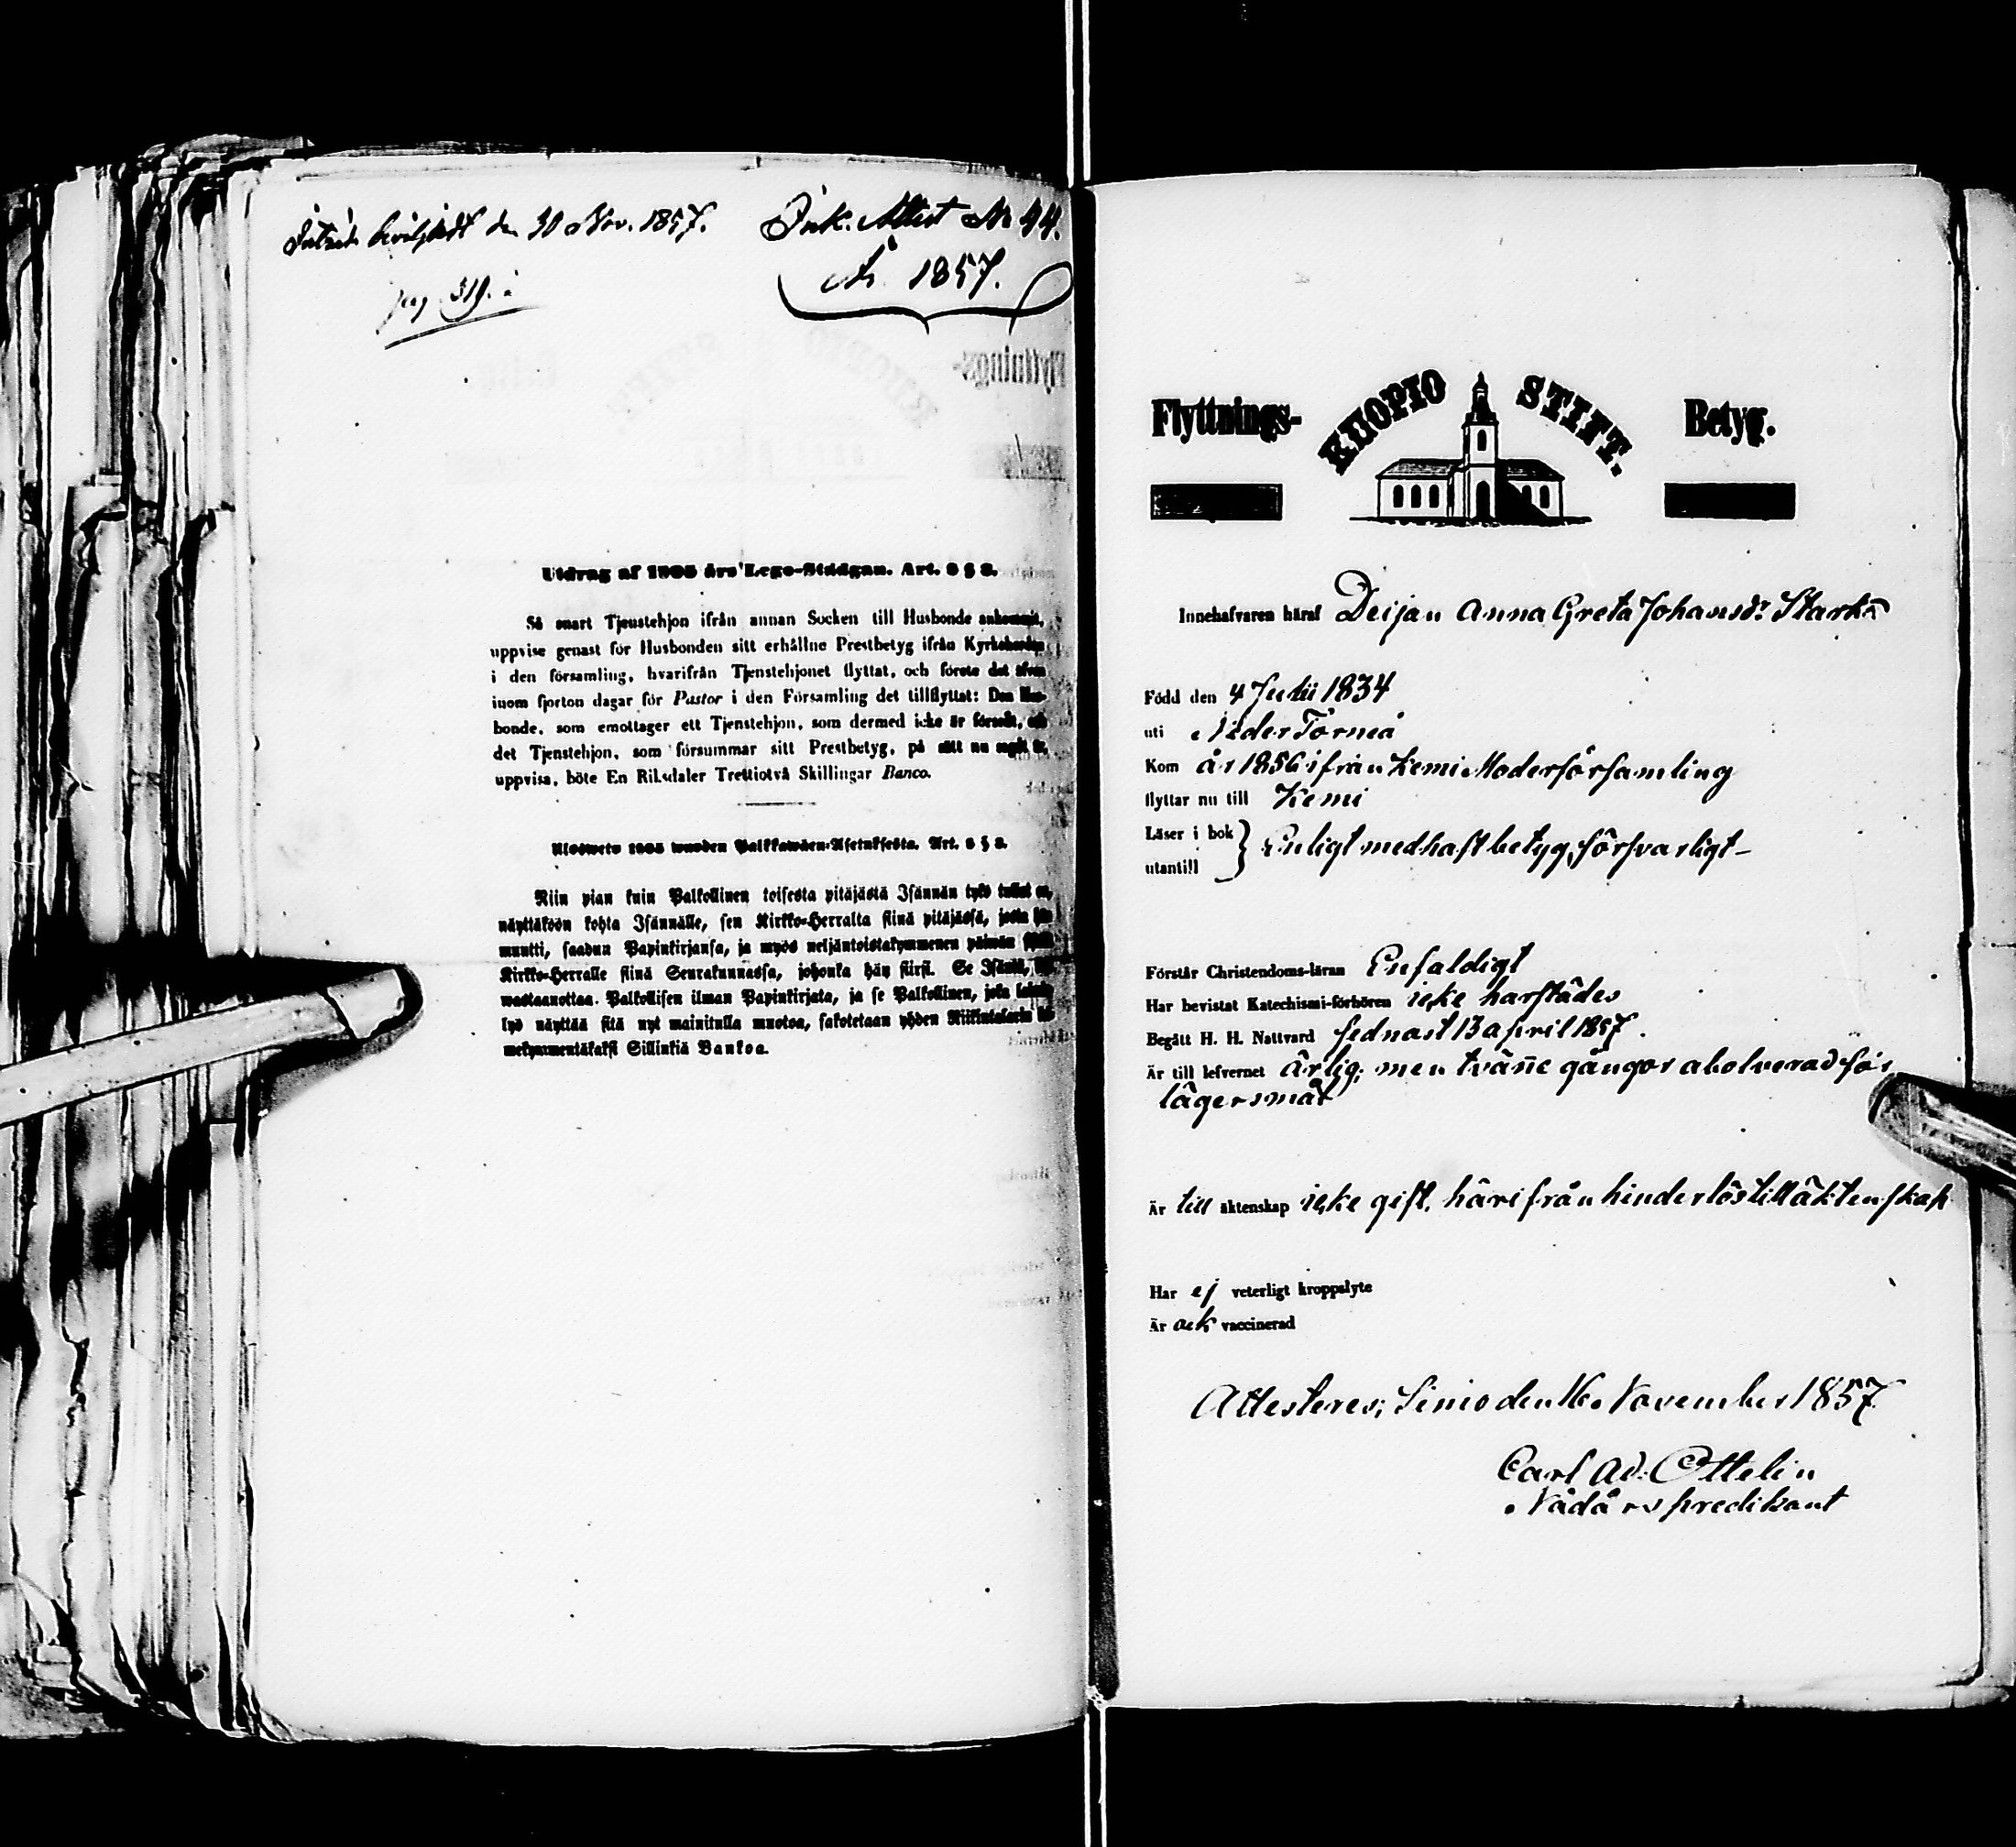 Inträde beviljadt den 30 Nov. 1857.
pag 319.
Ink. Attest No 44.
År 1857.
Utdrag af 1805 års Lego-Stadgan. Art. 8 § 8.
Så snart Tjenstehjon ifrån annan Socken till Husbonde ankommit,
uppvise genast för Husbonden sitt erhållne Prestbetyg ifrån Kyrkoherden
i den församling, hvarifrån Tjenstehjonet flyttat, och förete det äfven
inom fjorton dagar för Pastor i den Församling det tillflyttat: Den Hus-
bonde, som emottager ett Tjenstehjon, som dermed icke är försedt, och
det Tjenstehjon, som försummar sitt Prestbetyg, på sätt nu sagdt är,
uppvisa, böte En Riksdaler Trettiotvå Skillingar Banco.
Ulosweto 1805 wuoden Palkkawäen-Asetuksesta. Art. 8 § 8.
Niin pian kuin Palkollinen toisesta pitäjästä Isännän tykö tullut on,
näyttäköön kohta Isännälle, sen Kirkko-Herralta siinä pitäjässä, josta hän
muutti, saadun Papinkirjansa, ja myös neljäntoistakymmenen päiwän
Kirkko-Herralle siinä Seurakunnassa, johonka hän siirsi. Se Isäntä,
wastaanottaa Palkollisen ilman Papinkirjata, ja se Palkollinen, joka
lyö näyttää sitä nyt mainitulla muotoa, sakotetaan yhden Riikintalarin
mekymmentäkaksi Sillinkiä Bankoa.
Flyttnings- KUOPIO STIFT. Betyg.
Innehafvaren häraf Deijan Anna Greta Johansdr Stark
Född den 4 Julii 1834
uti Neder Torneå
Kom år 1856 ifrån Kemi Moderförsamling
flyttar nu till Kemi
Läser i bok
utantill } Enligt medhaft betyg, försvarligt –
Förstår Christendoms-läran Enfaldigt
Har bevistat Katechismi-förhören icke härstädes
Begått H. H. Nattvard sednast 13 april 1857.
Är till lefvernet ärlig; men tvänne gångor absolverad för
lägersmål
Är till äktenskap icke gift, härifrån hinderlös till äktenskap
Har ej veterligt kroppslyte
Är ock vaccinerad
Attesteres; Simo den 16 November 1857
Carl Ad: Ottelin
Nådårspredikant